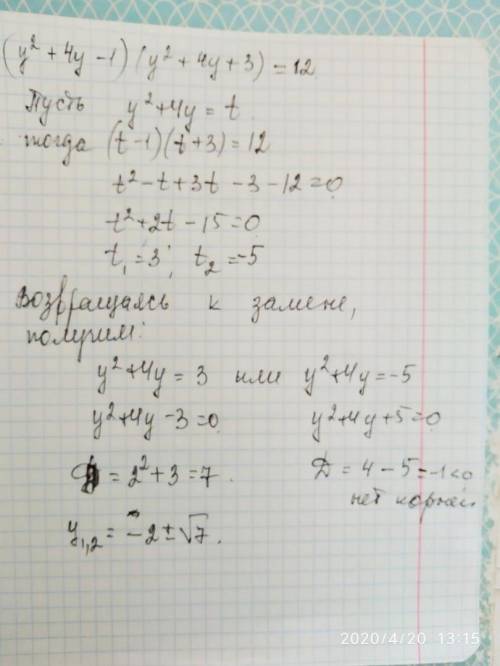 (y² + 4y - 1) (y² + 4y + 3) = 12
Пусть y² + 4y = t
тогда (t - 1)(t + 3) = 12
t² - t + 3t - 3 - 12 = 0
t² + 2t - 15 = 0
t₁ = 3; t₂ = -5
Возвращаясь к замене,
получим:
y² + 4y = 3 или y² + 4y = -5
y² + 4y - 3 = 0 y² + 4y + 5 = 0
Д = 2² + 3 = 7. Д = 4 - 5 = -1 < 0
нет корней
y₁,₂ = -2 ± √7.
2020/4/20 13:15